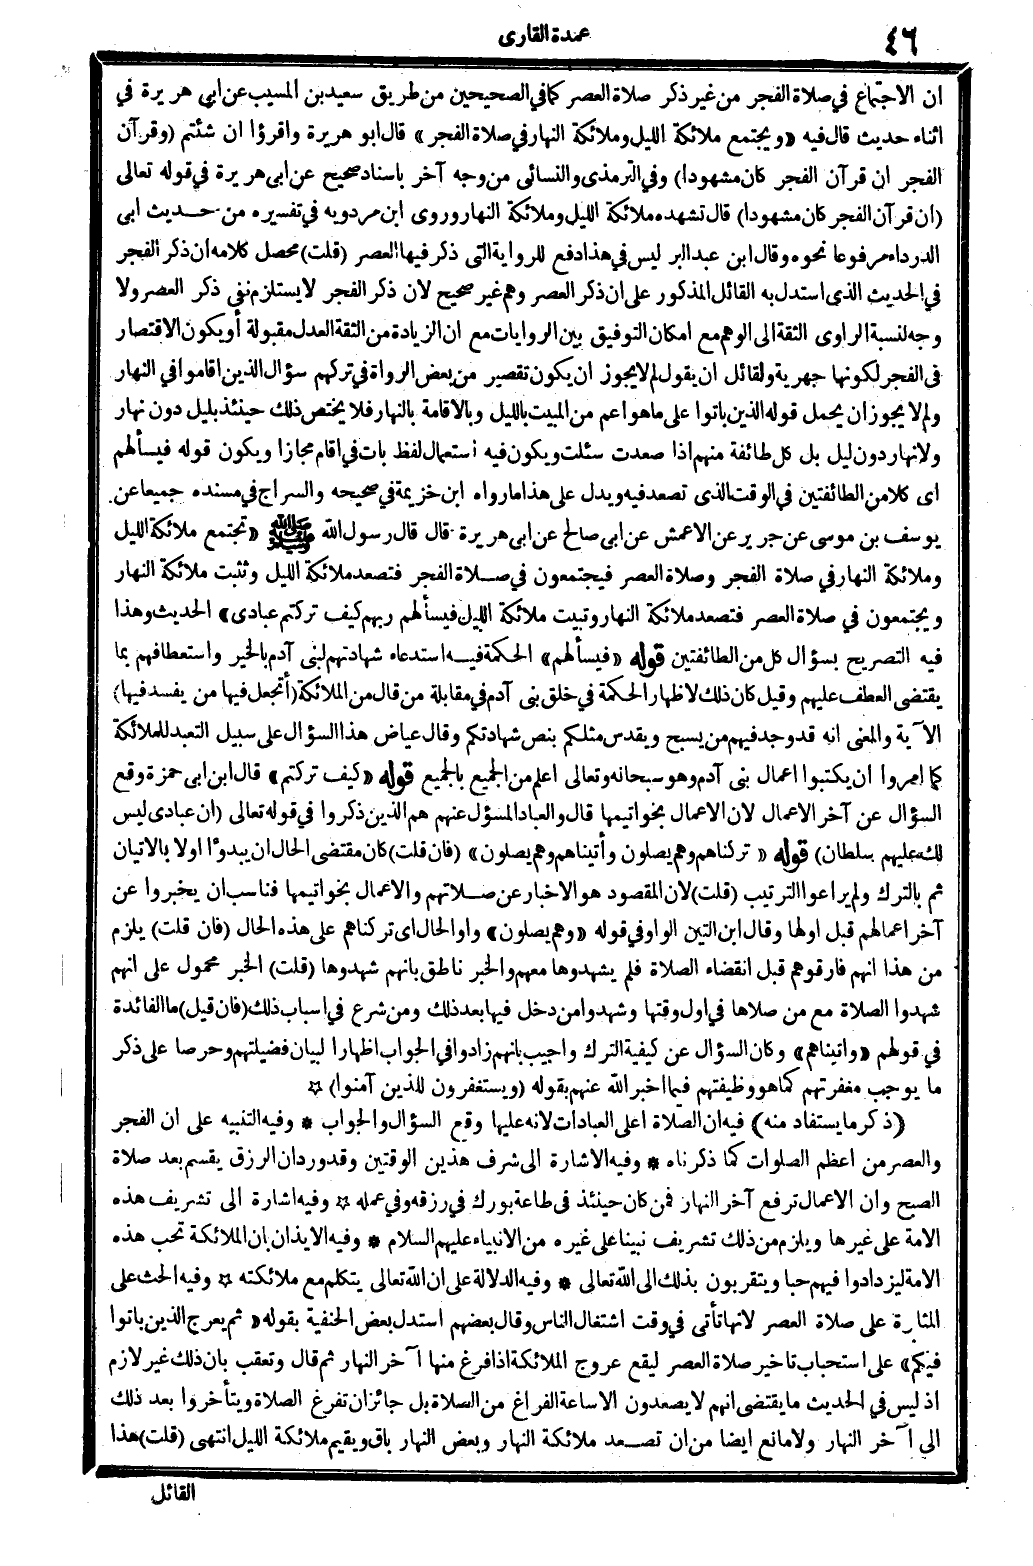 ٤٦
عمدة القارى
ان الاجتماع في صلاة الفجر من غير ذكر صلاة العصر كما في الصحيحين من طريق سعيد بن المسيب عن ابي هريرة في
اثناء حديث قال فيه «ويجتمع ملائكة الليل وملائكة النهار في صلاة الفجر» قال ابو هريرة واقرؤا ان شئتم (وقرآن
الفجر ان قرآن الفجر كان مشهودا) وفي الترمذى والنسائى من وجه آخر باسناد صحيح عن ابى هريرة في قوله تعالى
(ان قرآن الفجر كان مشهودا) قال تشهده ملائكة الليل وملائكة النهار وروى ابن مردويه في تفسيره من حديث ابى
الدرداء مرفوعا نحوه وقال ابن عبد البر ليس في هذا دفع للرواية التى ذكر فيها العصر (قلت) محصل كلامه ان ذكر الفجر
في الحديث الذى استدل به القائل المذكور على ان ذكر العصر وهم غير صحيح لان ذكر الفجر لا يستلزم نفى ذكر العصر ولا
وجه لنسبة الراوى الثقة الى الوهم مع امكان التوفيق بين الروايات مع ان الزيادة من الثقة العدل مقبولة أو يكون الاقتصار
فى الفجر لكونها جهرية ولقائل ان يقول لم لا يجوز ان يكون تقصير من بعض الرواة في تركهم سؤال الذين اقاموا في النهار
ولم لا يجوز ان يحمل قوله الذين باتوا على ما هو اعم من المبيت بالليل وبالاقامة بالنهار فلا يختص ذلك حينئذ بليل دون نهار
ولا نهار دون ليل بل كل طائفة منهم اذا صعدت سئلت ويكون فيه استعمال لفظ بات في اقام مجازا ويكون قوله فيسألهم
اى كلا من الطائفتين في الوقت الذى تصعد فيه ويدل على هذا ما رواه ابن خزيمة في صحيحه والسراج في مسنده جميعا عن
يوسف بن موسى عن جرير عن الاعمش عن ابى صالح عن ابى هريرة قال قال رسول الله ﷺ «تجتمع ملائكة الليل
وملائكة النهار في صلاة الفجر وصلاة العصر فيجتمعون في صلاة الفجر فتصعد ملائكة الليل وتثبت ملائكة النهار
ويجتمعون في صلاة العصر فتصعد ملائكة النهار وتبيت ملائكة الليل فيسألهم ربهم كيف تركتم عبادى» الحديث وهذا
فيه التصريح بسؤال كل من الطائفتين قوله «فيسألهم» الحكمة فيه استدعاء شهادتهم لبنى آدم بالخير واستعطافهم بما
يقتضى العطف عليهم وقيل كان ذلك لاظهار الحكمة في خلق بنى آدم في مقابلة من قال من الملائكة (أتجعل فيها من يفسد فيها)
الآية والمعنى انه قد وجد فيهم من يسبح ويقدس مثلكم بنص شهادتكم وقال عياض هذا السؤال على سبيل التعبد للملائكة
كما امروا ان يكتبوا اعمال بنى آدم وهو سبحانه وتعالى اعلم من الجميع بالجميع قوله «كيف تركتم» قال ابن ابى حمزة وقع
السؤال عن آخر الاعمال لان الاعمال بخواتيمها قال والعباد المسؤل عنهم هم الذين ذكروا في قوله تعالى (ان عبادى ليس
لك عليهم سلطان) قوله «تركناهم وهم يصلون وأتيناهم وهم يصلون» (فان قلت) كان مقتضى الحال ان يبدؤا اولا بالاتيان
ثم بالترك ولم يراعوا الترتيب (قلت) لان المقصود هو الاخبار عن صلاتهم والاعمال بخواتيمها فناسب ان يخبروا عن
آخر اعمالهم قبل اولها وقال ابن التين الواو في قوله «وهم يصلون» واو الحال اى تركناهم على هذه الحال (فان قلت) يلزم
من هذا انهم فارقوهم قبل انقضاء الصلاة فلم يشهدوها معهم والخبر ناطق بانهم شهدوها (قلت) الخبر محمول على انهم
شهدوا الصلاة مع من صلاها في اول وقتها وشهدوا من دخل فيها بعد ذلك ومن شرع في اسباب ذلك (فان قيل) ما الفائدة
في قولهم «واتيناهم» وكان السؤال عن كيفية الترك واجيب بانهم زادوا في الجواب اظهارا لبيان فضيلتهم وحرصا على ذكر
ما يوجب مغفرتهم كما هو وظيفتهم فيما اخبر الله عنهم بقوله (ويستغفرون للذين آمنوا) ☆
(ذكر ما يستفاد منه) فيه ان الصلاة اعلى العبادات لانه عليها وقع السؤال والجواب * وفيه التنبيه على ان الفجر
والعصر من اعظم الصلوات كما ذكرناه * وفيه الاشارة الى شرف هذين الوقتين وقد ورد ان الرزق يقسم بعد صلاة
الصبح وان الاعمال ترفع آخر النهار فمن كان حينئذ في طاعة بورك في رزقه وفي عمله ☆ وفيه اشارة الى تشريف هذه
الامة على غيرها ويلزم من ذلك تشريف نبينا على غيره من الانبياء عليهم السلام * وفيه الايذان بان الملائكة تحب هذه
الامة ليزدادوا فيهم حبا ويتقربون بذلك الى الله تعالى * وفيه الدلالة على ان الله تعالى يتكلم مع ملائكته ☆ وفيه الحث على
المثابرة على صلاة العصر لانها تأتى في وقت اشتغال الناس وقال بعضهم استدل بعض الحنفية بقوله «ثم يعرج الذين باتوا
فيكم» على استحباب تاخير صلاة العصر ليقع عروج الملائكة اذا فرغ منها آخر النهار ثم قال وتعقب بان ذلك غير لازم
اذ ليس في الحديث ما يقتضى انهم لا يصعدون الا ساعة الفراغ من الصلاة بل جائز ان تفرغ الصلاة ويتأخروا بعد ذلك
الي آخر النهار ولا مانع ايضا من ان تصعد ملائكة النهار وبعض النهار باق ويقيم ملائكة الليل انتهى (قلت) هذا
القائل